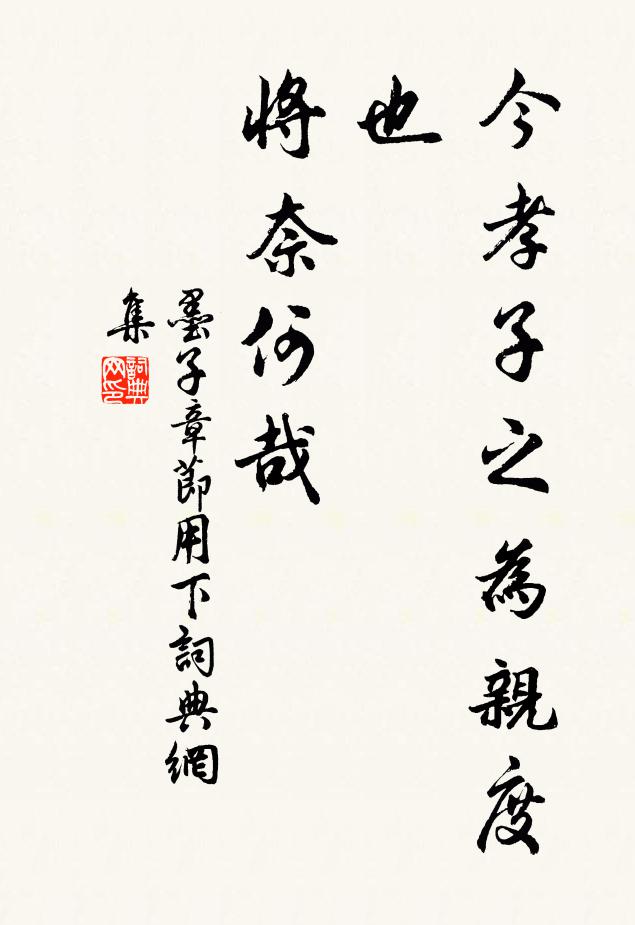 今孝子之為親度
也
將奈何哉
墨子章節用下詞典網
集
詞典
网印